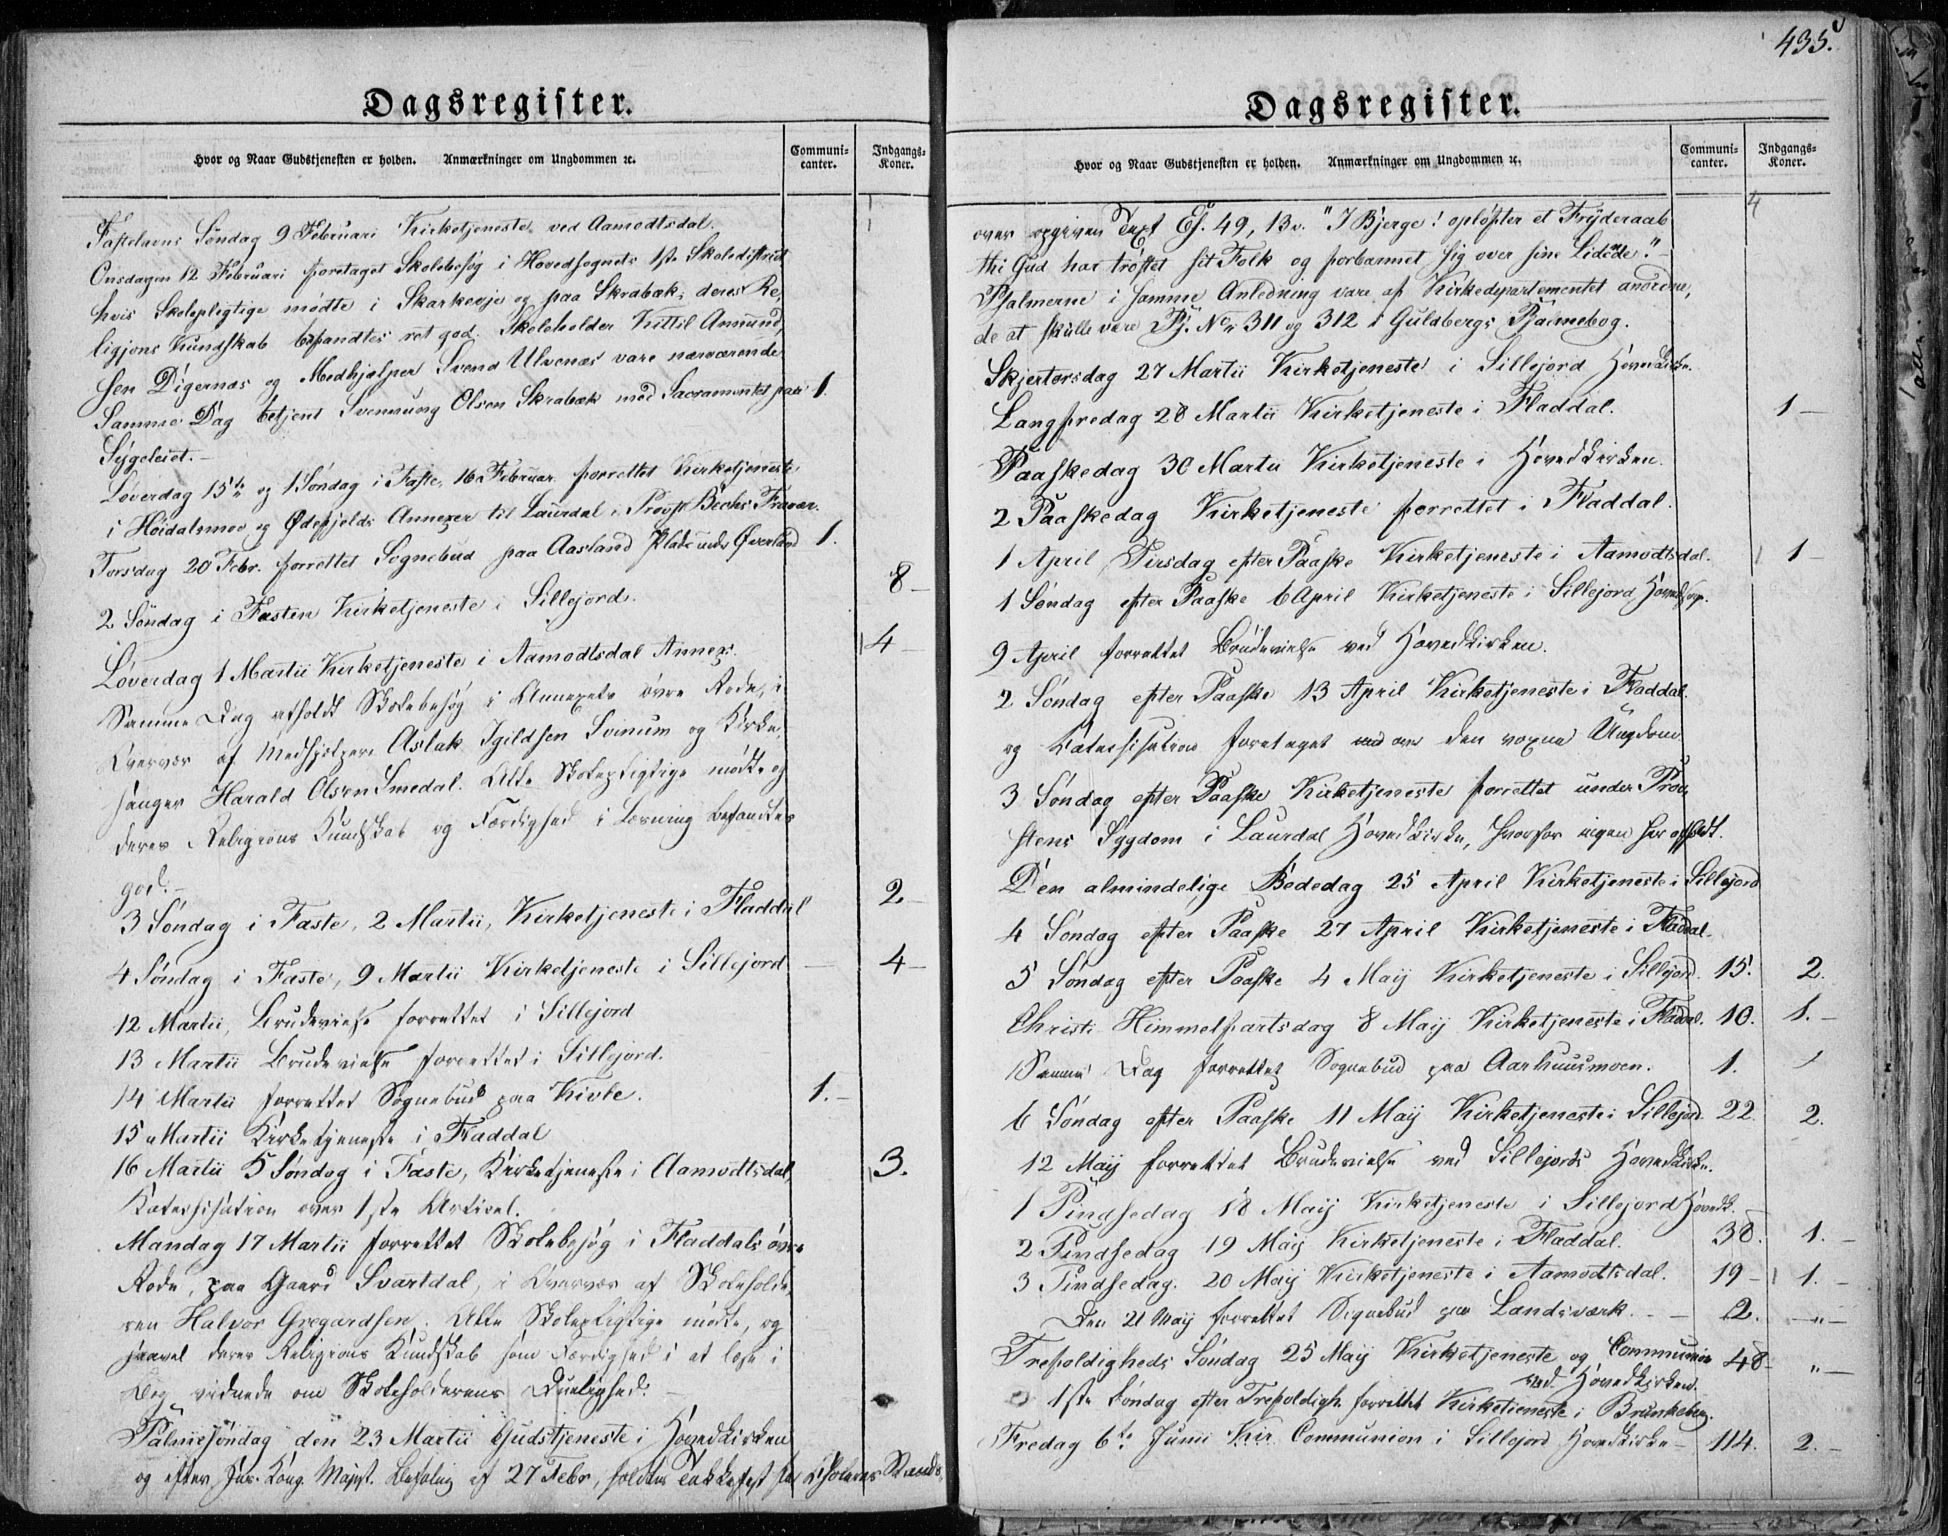 Dagsregister.
Hvor og Naar Gudstjenesten er holden. Anmærkninger om Ungdommen ⁊c.
Communi-
canter.
Indgangs-
Koner.
Fastelavns Søndag 9 Februari Kirketjeneste ved Aamodtsdal.
Onsdagen 12 Februari foretaget Skolebesøg i Hovedsognets 1ste Skoledistrict
hvis Skolepligtige mødte i Skarkeoje og paa Skrabæk; deres Re,
ligjons Kundskab befandtes ret god. Skoleholder Kittil Aanund,
sen Digernæs og Medhjælper Svend Ulvenæs vare nærværende
Samme Dag betjent Svennung Olsen Skrabæk med Sacramentet paa 1.
Sygeleiet.–
Løverdag 15de og 1 Søndag i Faste, 16 Februar forrettet Kirketjeneste
i Høidalsmoe og Ødefjelds Annexer til Laurdal i Provst Bechs Fravær.
Torsdag 20 Febr. forrettet Sognebud paa Aasland Plads under Øverland 1.
2 Søndag i Fasten Kirketjeneste i Sillejord. 8 –
Løverdag 1 Martii Kirketjeneste i Aamodtsdal Annex. 4 –
Samme Dag afholdt Skolebesøg i Annexets øvre Rode, i
Overvær af Medhjelpere Aslak Igildsen Svinum og Kirke,
sanger Harald Olsen Smedal. Alle Skolepligtige mødte og
deres Religions Kundskab og Færdighed i Læsning befandtes
god.–
3 Søndag i Faste, 2 Martii, Kirketjeneste i Fladdal 2 –
4 Søndag i Faste, 9 Martii Kirketjeneste i Sillejord – 4 –
12 Martii, Brudevielse forrettet i Sillejord
13 Martii Brudevielse forrettet i Sillejord.
14 Martii forrettet Sognebud paa Kivle. 1.–
15 Martii Kirketjeneste i Fladdal
16 Martii 5 Søndag i Faste, Kirketjeneste i Aamodtsdal, 3.
Katechisation over 1ste Articel.
Mandag 17 Martii forrettet Skolebesøg i Fladdals øvre
Rode, paa Gaard Svartdal, i Overvær af Skolehold,
ren Halvor Gregardsen. Alle Skolepligtige mødte, og
saavel deres Religions Kundskab som Færdighed i at læse i
Bog vidnede om Skoleholderens Duelighed. –
Palmesøndag den 23 Martii Gudstjeneste i Hovedkirken
og efter Hs. Kong. Majst. Befaling af 27 Febr, holdtes Takkefest for Cholerae Stands,
435.
Dagsregister.
Hvor og Naar Gudstjenesten er holden. Anmærkninger om Ungdommen ⁊c.
Communi-
canter.
Indgangs-
Koner.
over opgiven Text Es. 49, 13 v. "I Bjerge! opløfter et Fryderaab 4
thi Gud har trøstet sit Folk og forbarmet sig over sine Lidende." –
Psalmerne i samme Anledning vare af Kirkedepartementet anordne,
de at skulle være Ps. Nor 311 og 312 i Guldbergs Psalmebog.
Skjertorsdag 27 Martii Kirketjeneste i Sillejord Hovedkirke.
Langfredag 28 Martii Kirketjeneste i Fladdal. 1 –
Paaskedag 30 Martii Kirketjeneste i Hovedkirken.
2 Paaskedag Kirketjeneste forrettet i Fladdal.
1 April Tirsdag efter Paaske Kirketjeneste i Aamodtsdal. 1 –
1 Søndag efter Paaske 6 April Kirketjeneste i Sillejord Hovedsogn.
9 April forrettet Brudevielse ved Hovedkirken.
2 Søndag efter Paaske 13 April Kirketjeneste i Fladdal.
og Katechisation foretaget over den voxne Ungdom
3 Søndag efter Paaske Kirketjeneste forrettet under Prov,
stens Sygdom i Laurdal Hovedkirke, hvorfor ingen her afholdt.
Den almindelige Bededag 25 April Kirketjeneste i Sillejord
4 Søndag efter Paaske 27 April Kirketjeneste i Fladdal.
5 Søndag efter Paaske 4 Maij Kirketjeneste i Sillejord. 15. 2.
Christi Himmelfartsdag 8 Maij Kirketjeneste i Fladdal. 10. 1.–
Samme Dag forrettet Sognebud paa Aarhuusmoen. 1.
6 Søndag efter Paaske 11 Maij Kirketjeneste i Sillejord. 22. 2.
12 Maij forrettet Brudevielse ved Sillejords Hovedkirke.
1 Pindsedag 18 Maij Kirketjeneste i Sillejord Hovedk.
2 Pindsedag 19 Maij Kirketjeneste i Fladdal. 38. 1. –
3 Pindsedag. 20 Maij Kirketjeneste i Aamodtsdal. 19 – 1. –
Den 21 Maij forrettet Sognebud paa Landsværk. – – 2. –"–
Trefoldigheds Søndag 25 Maij Kirketjeneste og Communion 48 – " –
ved Hovedkirken.
1ste Søndag efter Trefoldigh. forrettet Kirketjeneste i Brunkeberg.
Fredag 6te Junii Kir. Communion i Sillejord Hovedkirke – 114. 2. –